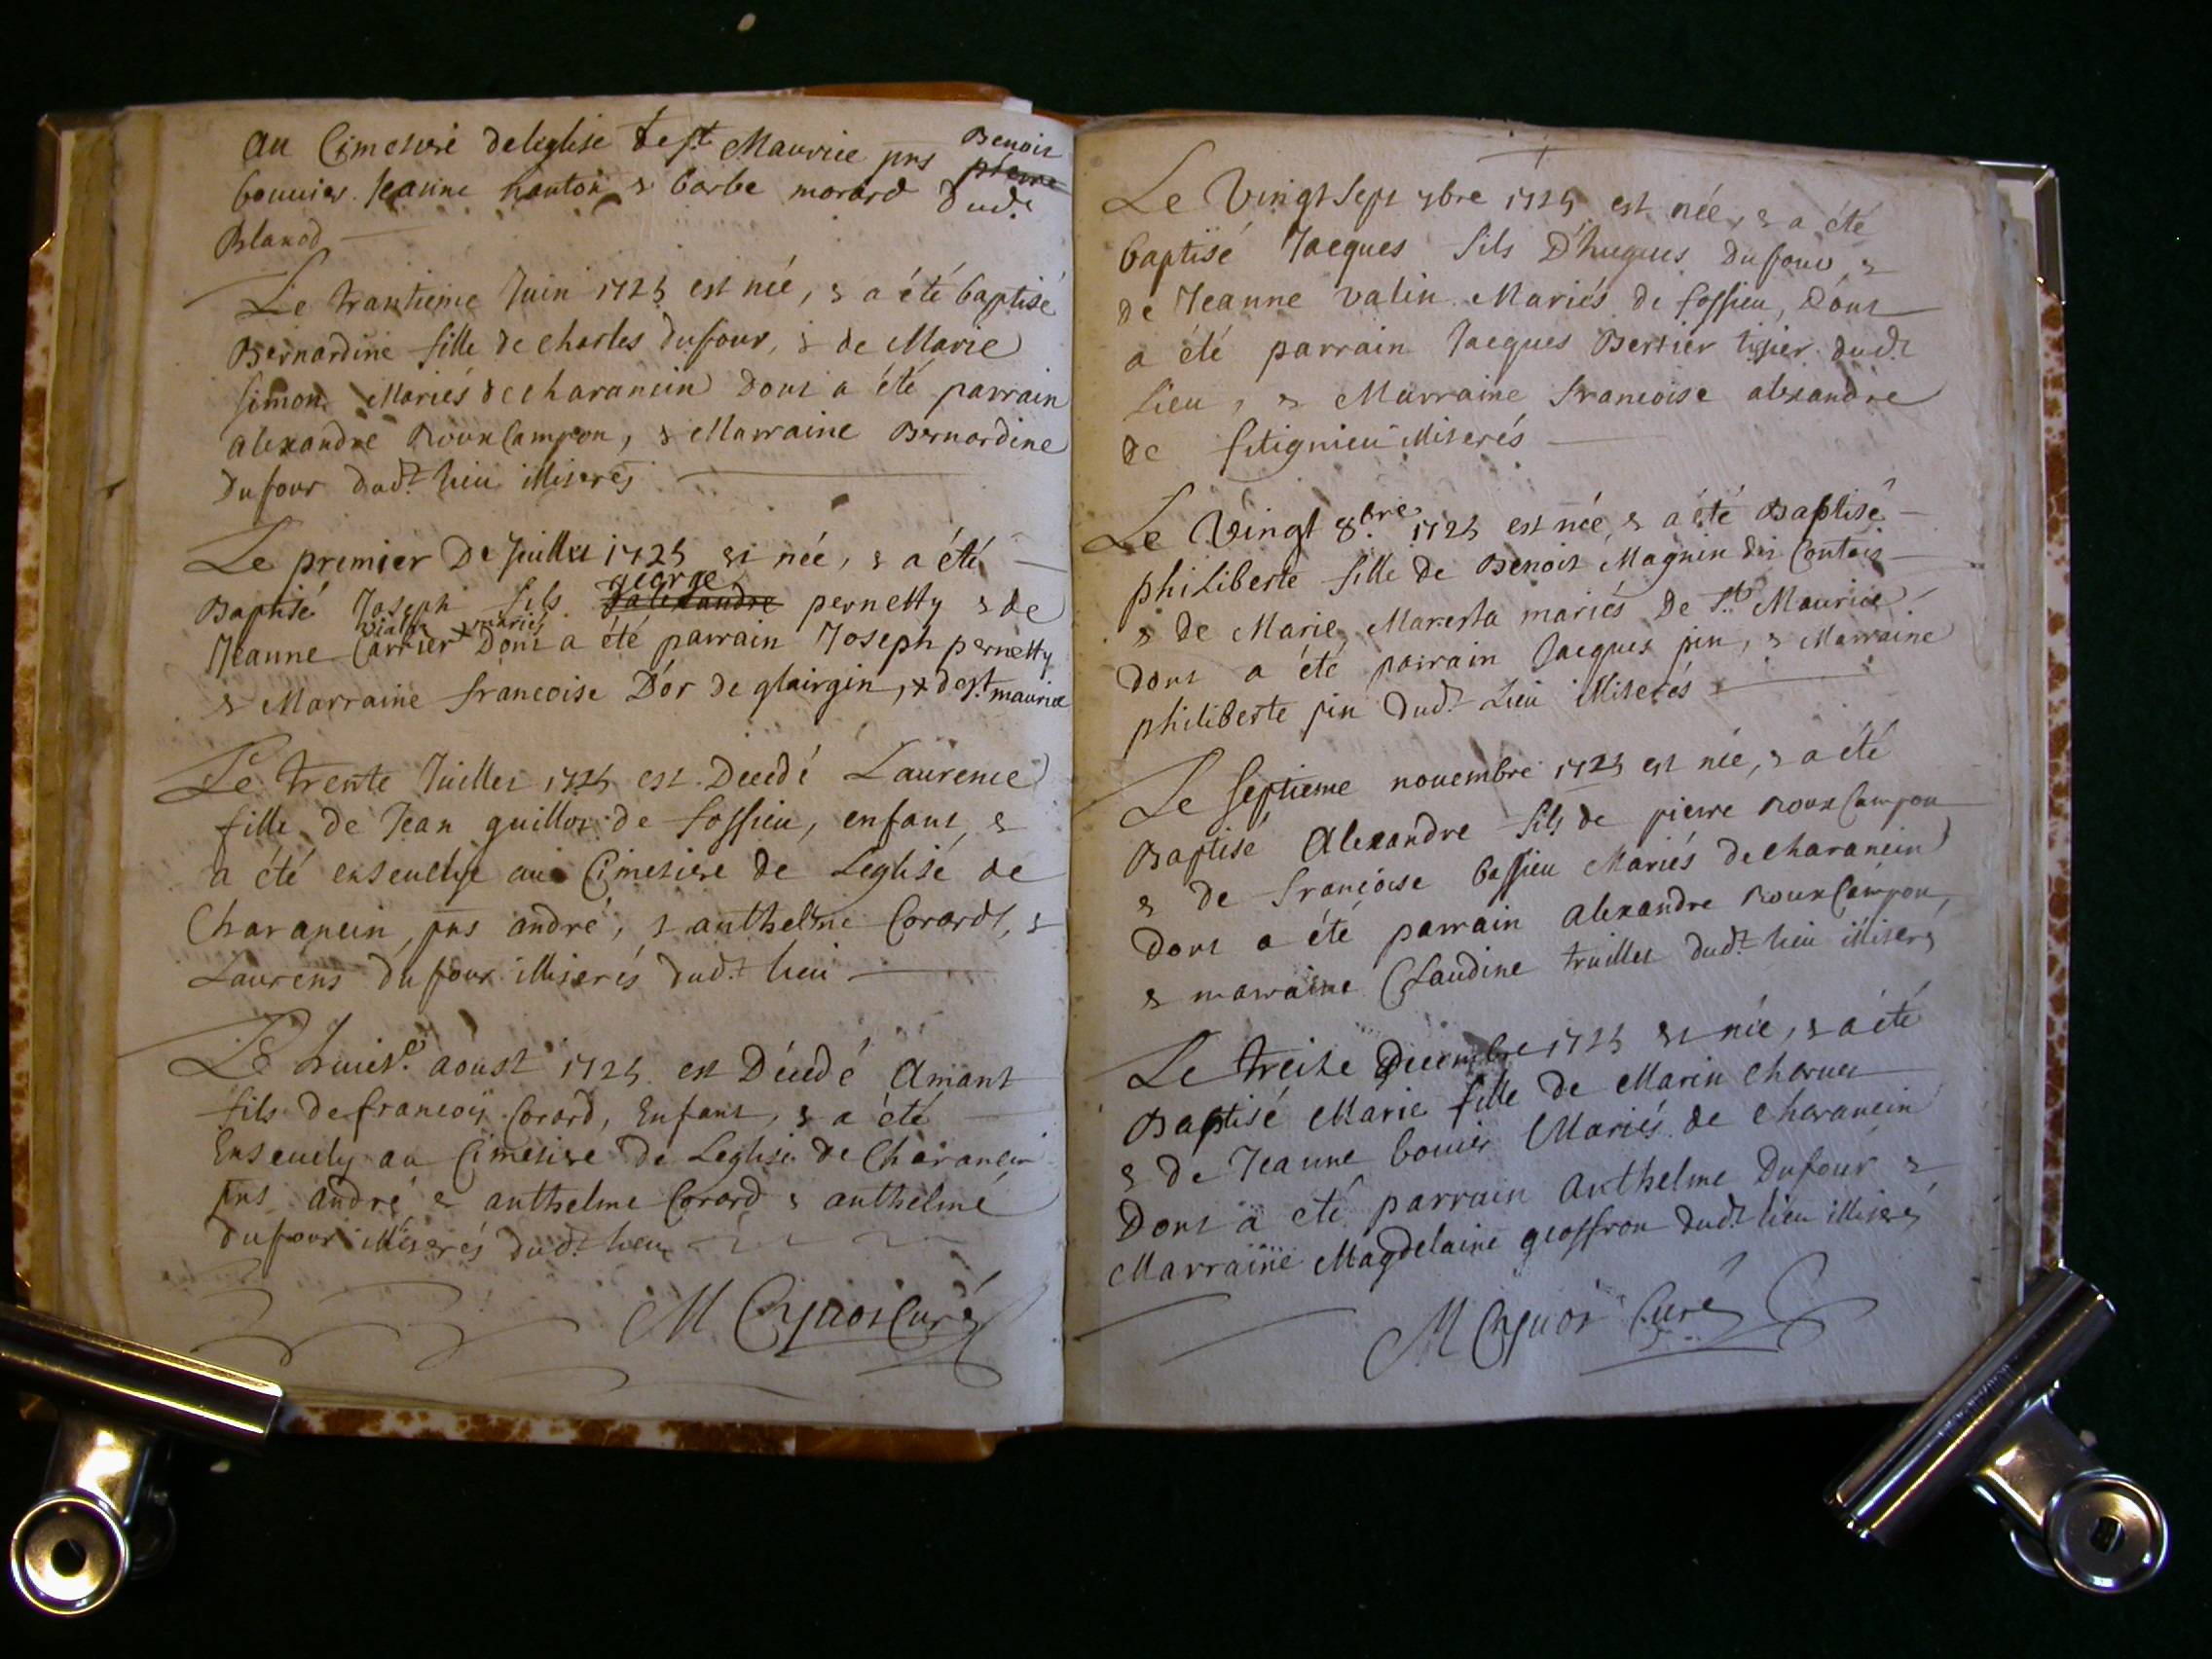 au Cimetiere de leglise de st Maurice pns Benoit pierre
bouuier Jeanne hauton & barbe morard dud.t
Blanod
Le trantieme Juin 1725 est née, & a été baptisé
Bernardine fille de charles dufour, & de Marie
simon Mariés de charancin dont a été parrain
alexandre Rouxcampon, & Marraine Bernardine
Dufour dud.t lieu illiserés
Le premier De Juillet 1725 est née, & a été
Baptisé Joseph fils george d'alexandre pernetty & de
Jeanne Carrier vialle + mariés Dont a été parrain Joseph pernetty
& Marraine francoise D'or de glairgin, + de st maurice
Le trente Juillet 1725 est Decedé Laurence
fille de Jean guillot de fossieu, enfant &
a été enseuely au Cimetiere de Leglise de
Charancin, pns andré, & anthelme Corard, &
Laurens dufour illiserés dud.t lieu
Le huict.e aoust 1725 est Décedé Amant
fils de francois Corard, Enfant, & a été
Enseuely au Cimetiere de Leglise de Charancin
pns andré & anthelme Corard & anthelme
dufour illiserés dud.t lieu
M Curé
Le Vingt sept 7bre 1725 est née, & a été
baptisé Jacques fils D'hugues Dufour &
de Jeanne valin Mariés de fossieu, Dont
a été parrain Jacques Bertier tissier dud.t
Lieu, & Marraine francoise alexandre
de fitignieu illiserés
Le Vingt 8.bre 1725 est née & a été Baptisé
philiberte fille de Benoit Magnin dit Contois
& de Marie Maresta mariés De St. Maurice
dont a été parrain Jacques pin, & Marraine
philiberte pin dud.t Lieu illiserés
Le septieme nouembre 1725 est née, & a été
Baptisé Alexandre fils de pierre Rouxcampon
& de françoise bassieu Mariés de charancin
Dont a été parrain alexandre Rouxcampon,
& marraine Claudine truillet dud.t lieu illiserés
Le treize Decembre 1725 est née, & a été
Baptisé Marie fille de Marin charuet
& de Jeanne bouier Mariés de charancin
Dont a été parrain Anthelme Dufour &
Marraine Magdelaine geoffron dud.t lieu illiserés
M Curé